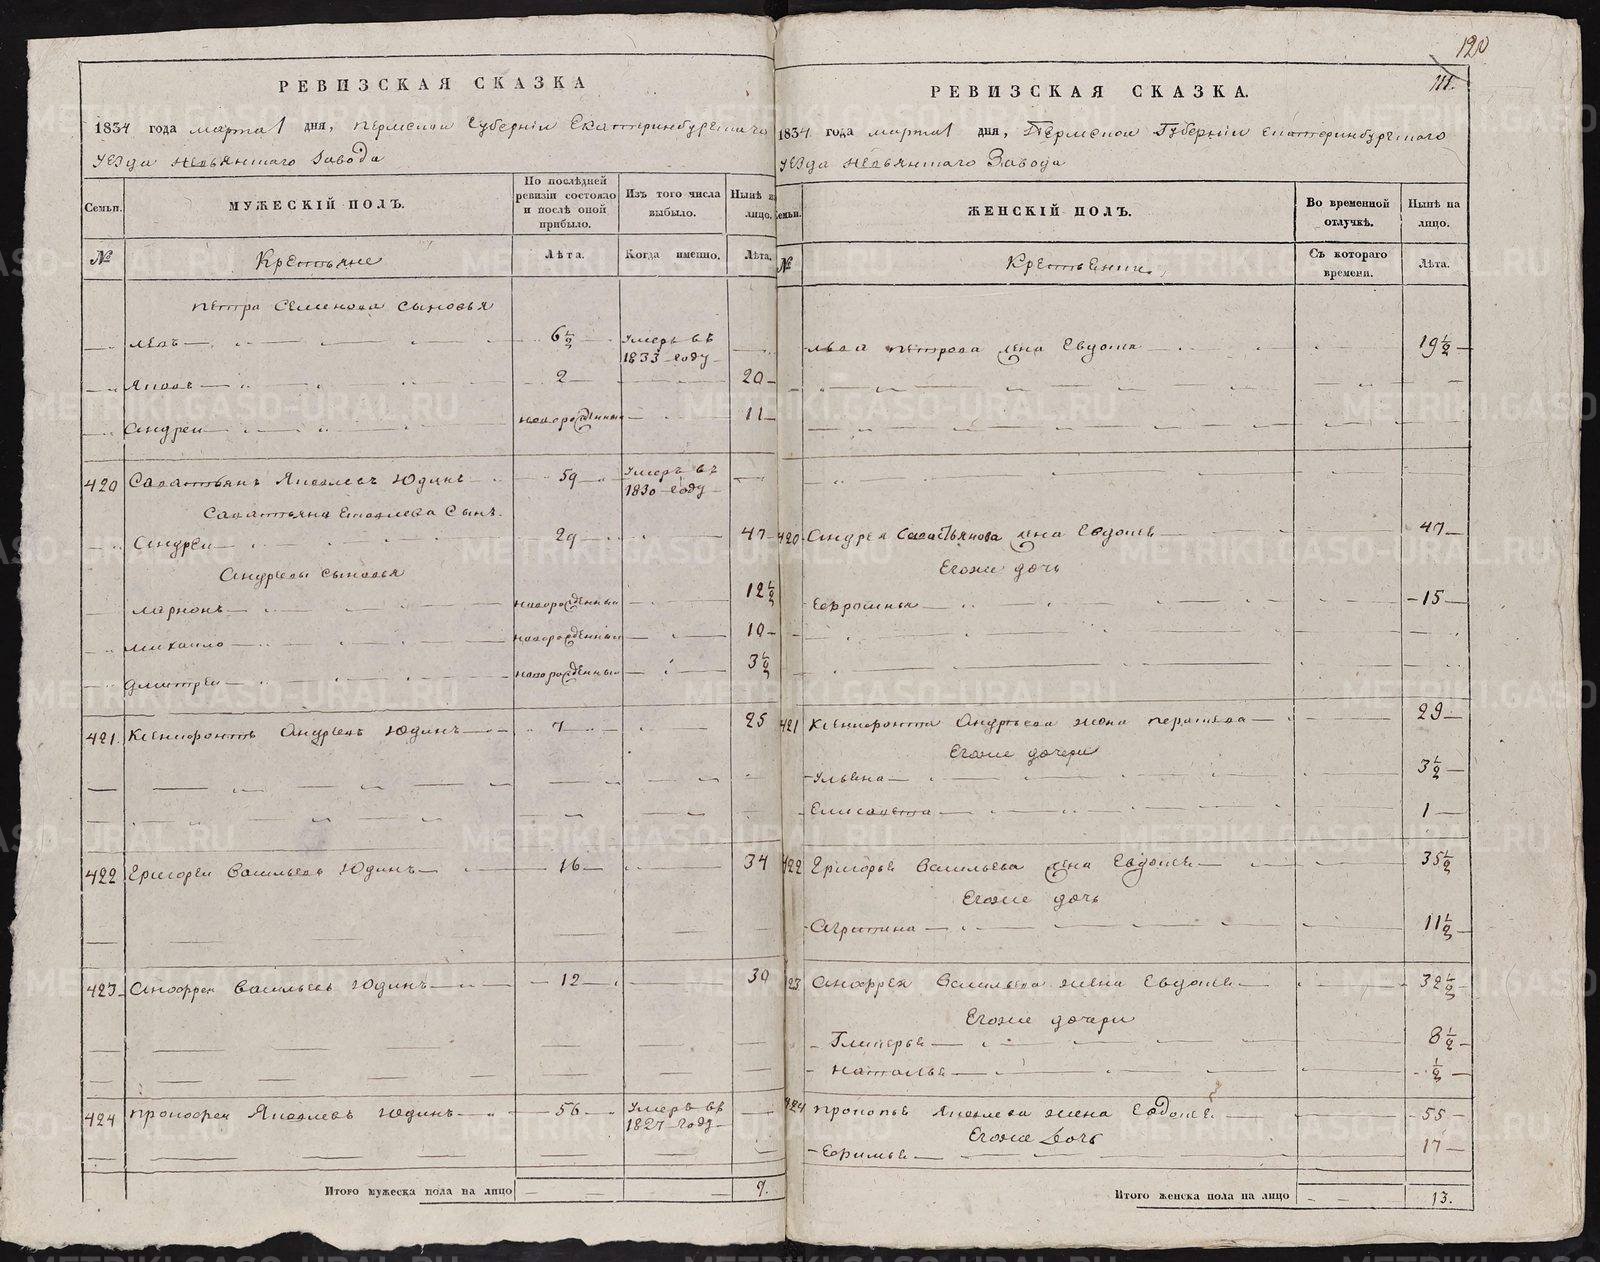 120
111.
РЕВИЗСКАЯ СКАЗКА
1834 года марта 1 дня, Пермской Губернiи Екатеринбургскаго
уезда Невьянскаго Завода
Семьи. МУЖЕСКIЙ ПОЛЪ. По послѣдней ревизiи состояло и послѣ оной прибыло. Изъ того числа выбыло. Нынѣ на лицо.
№ Крестьяне Лѣта. Когда именно. Лѣта.
Петра Семенова сыновья
Левъ 6 1/2 Умеръ въ 1833 году
Яковъ 2 20
Андреи новорожденный 11
420 Саватьянъ Яковлевъ Юдинъ 59 Умеръ въ 1830 году
Саватьяна Яковлева Сынъ
Андреи 29 47
Андреевы сыновья
Ларионъ новорожденный 12 1/2
Михаило новорожденный 10
Дмитреи новорожденный 3 1/2
421. Ксенофонтъ Андреевъ Юдинъ 7 25
422 Григореи Васильевъ Юдинъ 16 34
423 Анофреи Васильевъ Юдинъ 12 30
424 Прокофеи Яковлевъ Юдинъ 56 Умеръ въ 1827 году
Итого мужеска пола на лицо 9.
РЕВИЗСКАЯ СКАЗКА.
1834 года марта 1 дня, Пермской Губернiи Екатеринбургскаго
уезда Невьянскаго Завода
Семьи. ЖЕНСКIЙ ПОЛЪ. Во временной отлучкѣ. Нынѣ на лицо.
№ Съ котораго времени. Лѣта.
Льва Петрова жена Евдокiя 19 1/2
420 Андрея Саватьянова жена Евдокiя 47
Егоже дочь
Ефросинья 15
421 Ксенофонта Андреева жена 29
Егоже дочери
Ульяна 3 1/2
Елисавета 1
422 Григорья Васильева жена Евдокiя 35 1/2
Егоже дочь
Агрипина 11 1/2
423 Анофрея Васильева жена Евдокiя 32 1/2
Егоже дочери
Гликерья 8 1/2
Наталья 1/2
424 Прокопья Яковлева жена Евдокiя 55
Егоже дочь
Ефимья 17
Итого женска пола на лицо 13.
METRIKI.GASO-URAL.RU